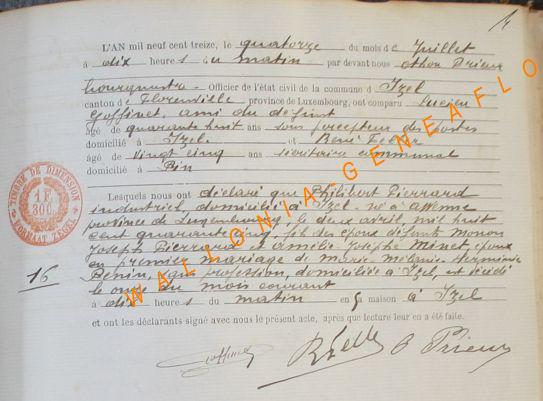 L'AN mil neuf cent treize, le quatorze du mois de Juillet
à dix heures du matin par devant nous Othon Prieur
bourgmestre Officier de l'état civil de la commune d'Izel
canton de Florenville province de Luxembourg, ont comparu Lucien
Goffinet, ami du défunt
âgé de quarante huit ans sous percepteur des postes
domicilié à Izel et René
âgé de vingt cinq ans secrétaire communal
domicilié à Pin
Lesquels nous ont déclaré que Philibert Pierrard
industriel domicilié à Izel né à
province de Luxembourg le deux avril mil huit
cent quarante fils des époux défunts
Joseph Pierrard et Amélie Josèphe Minet, époux
en premier mariage de Marie Mélanie Herminie
profession, domiciliée à Izel, est décédé
le onze du mois courant
à dix heures du matin en sa maison à Izel
et ont les déclarants signé avec nous le présent acte, après que lecture leur en a été faite.
Goffinet O Prieur
16
TIMBRE DE DIMENSION
1F
30C
FORMAAT ZEGEL
WALLONIA GENEAFLO